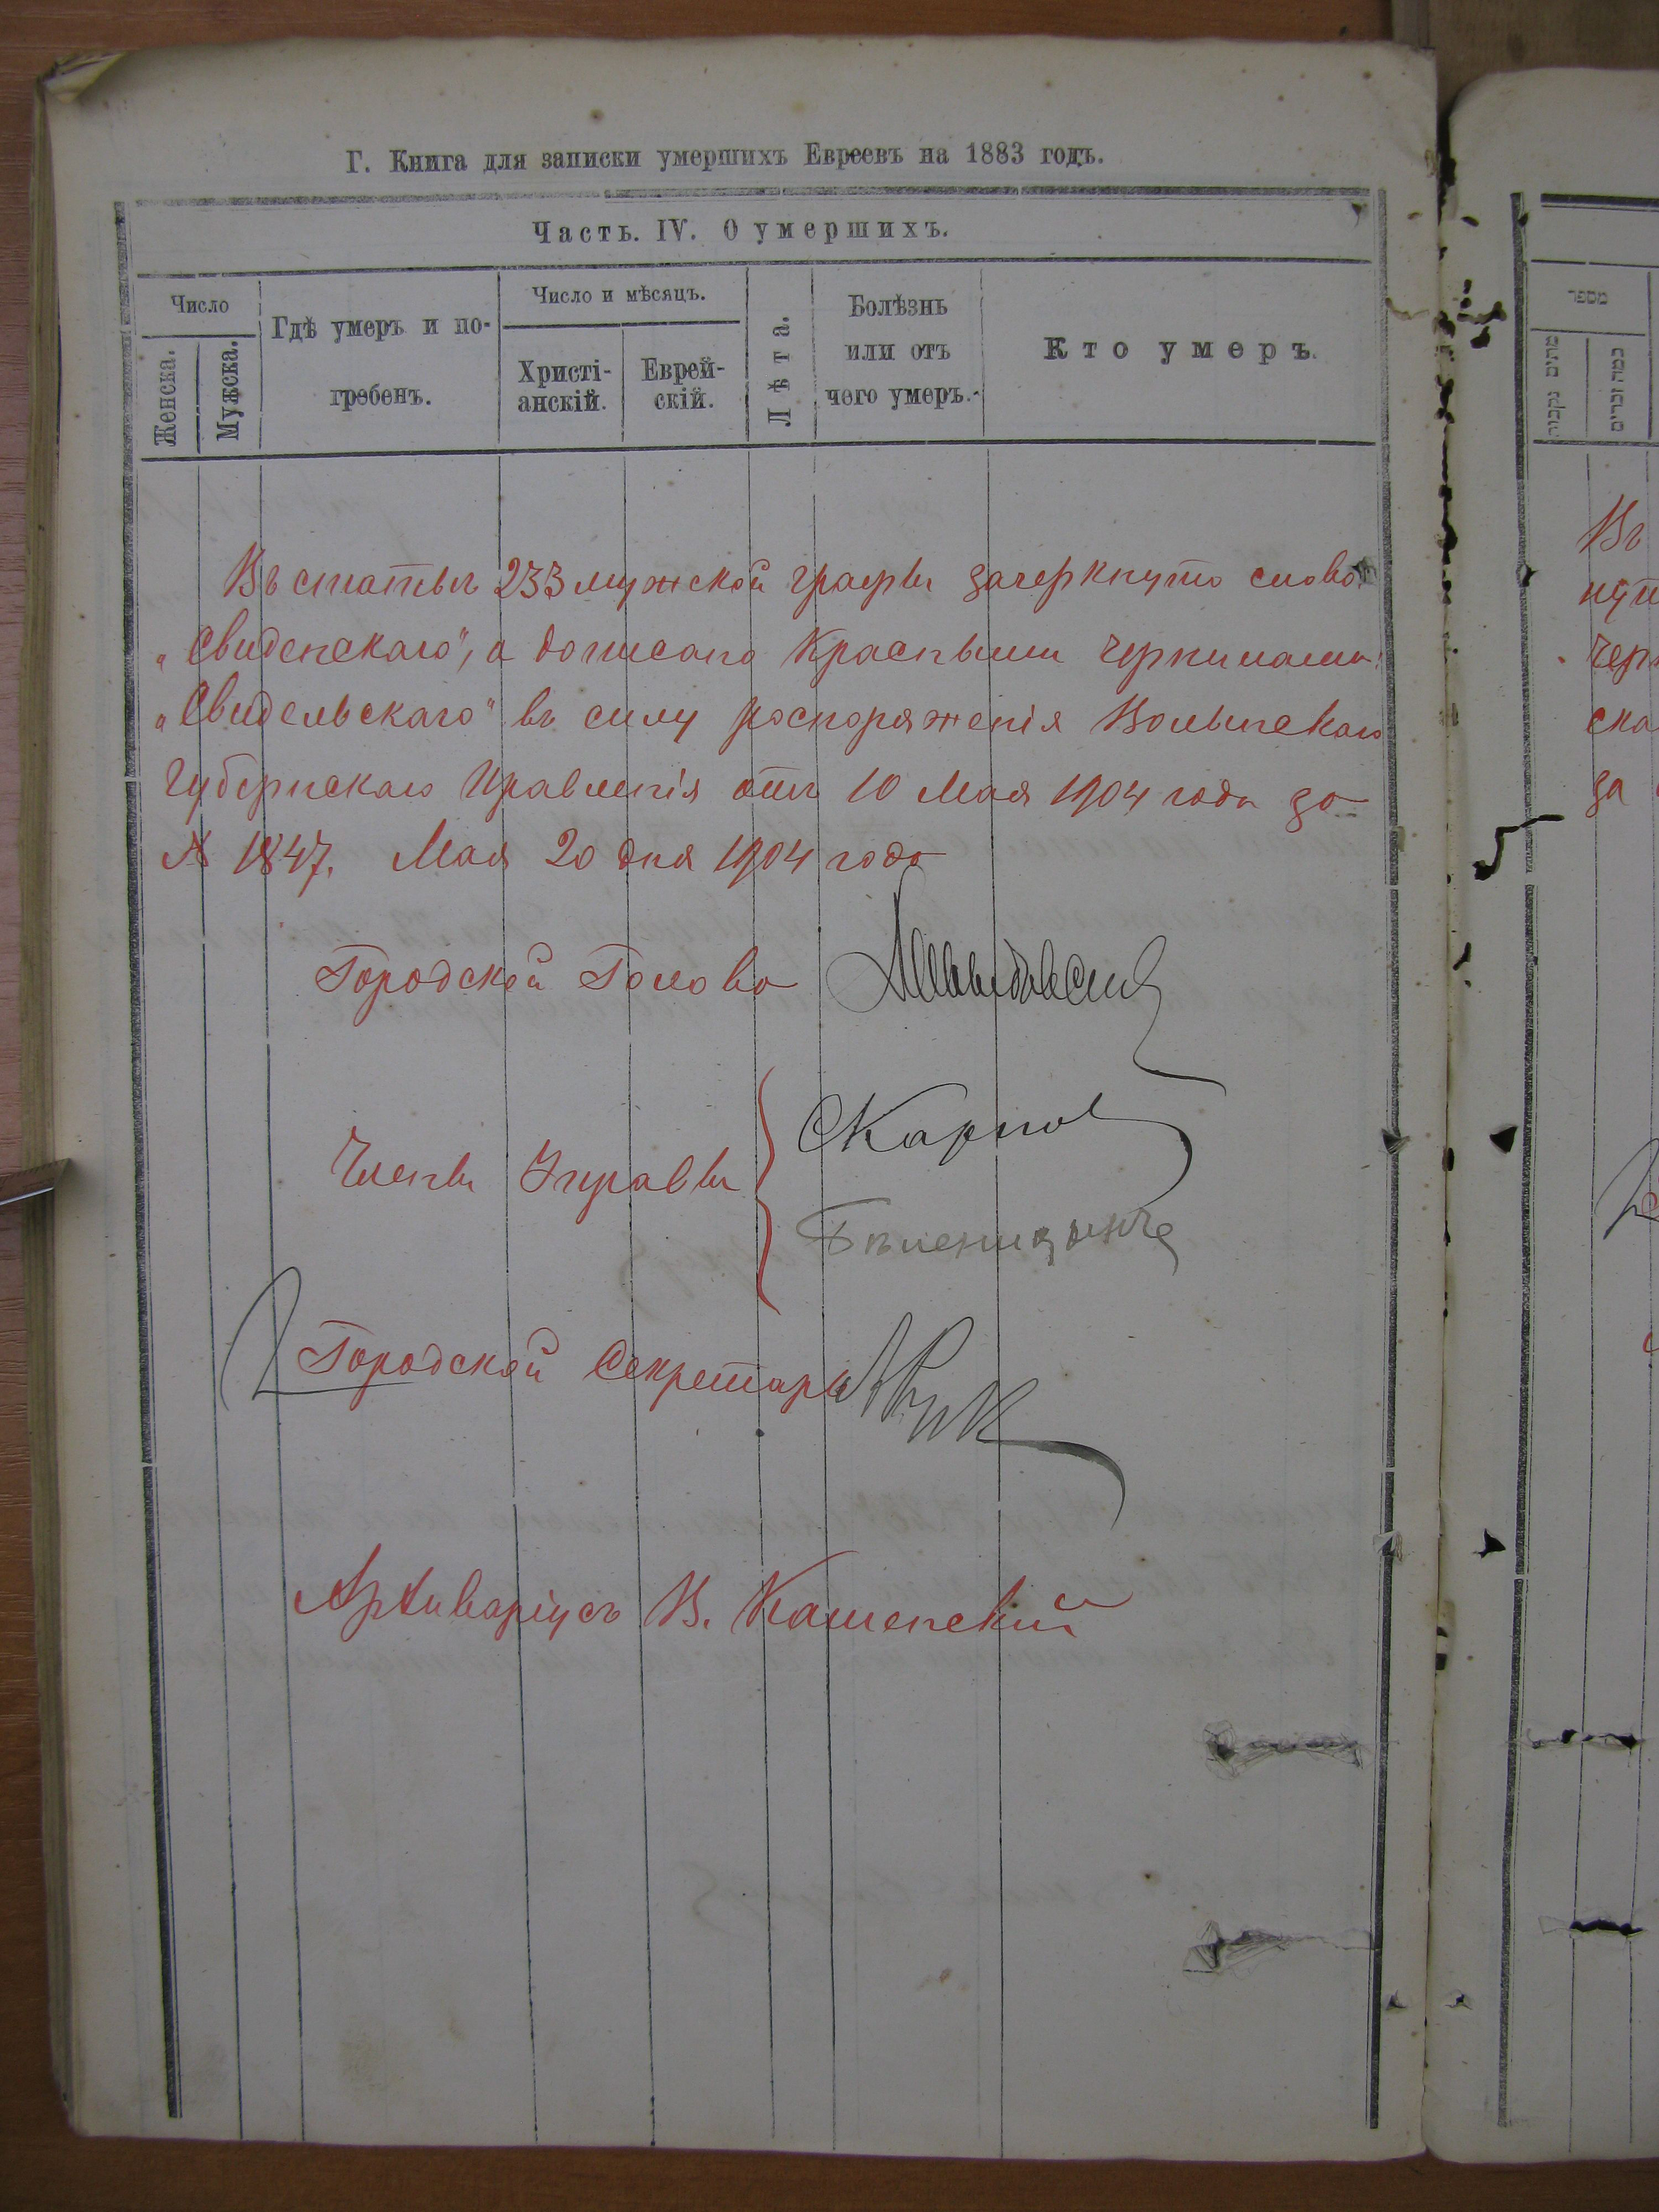 Г. Книга для записки умершихъ Евреевъ на 1883 годъ.
Часть. IV. О умершихъ.
Число
Женска.
Мужска.
Гдѣ умеръ и по-
гребенъ.
Число и мѣсяцъ.
Христі-
анскій.
Еврей-
скій.
Лѣта.
Болѣзнь
или отъ
чего умеръ.
Кто умеръ.
Въ статьѣ 233 мужской графы зачеркнуто слово
„Свиденскаго", а дописано красными чернилами:
„Свидельскаго" въ силу распоряженія Волынскаго
Губернскаго Правленія отъ 10 Мая 1904 года за
№ 1847. Мая 20 дня 1904 года
Городской Голова
Члены Управы
СКарпов
Городской Секретарь
Архиваріусъ В. Каменскій
מספר
Въ
нут
черн
ска
за